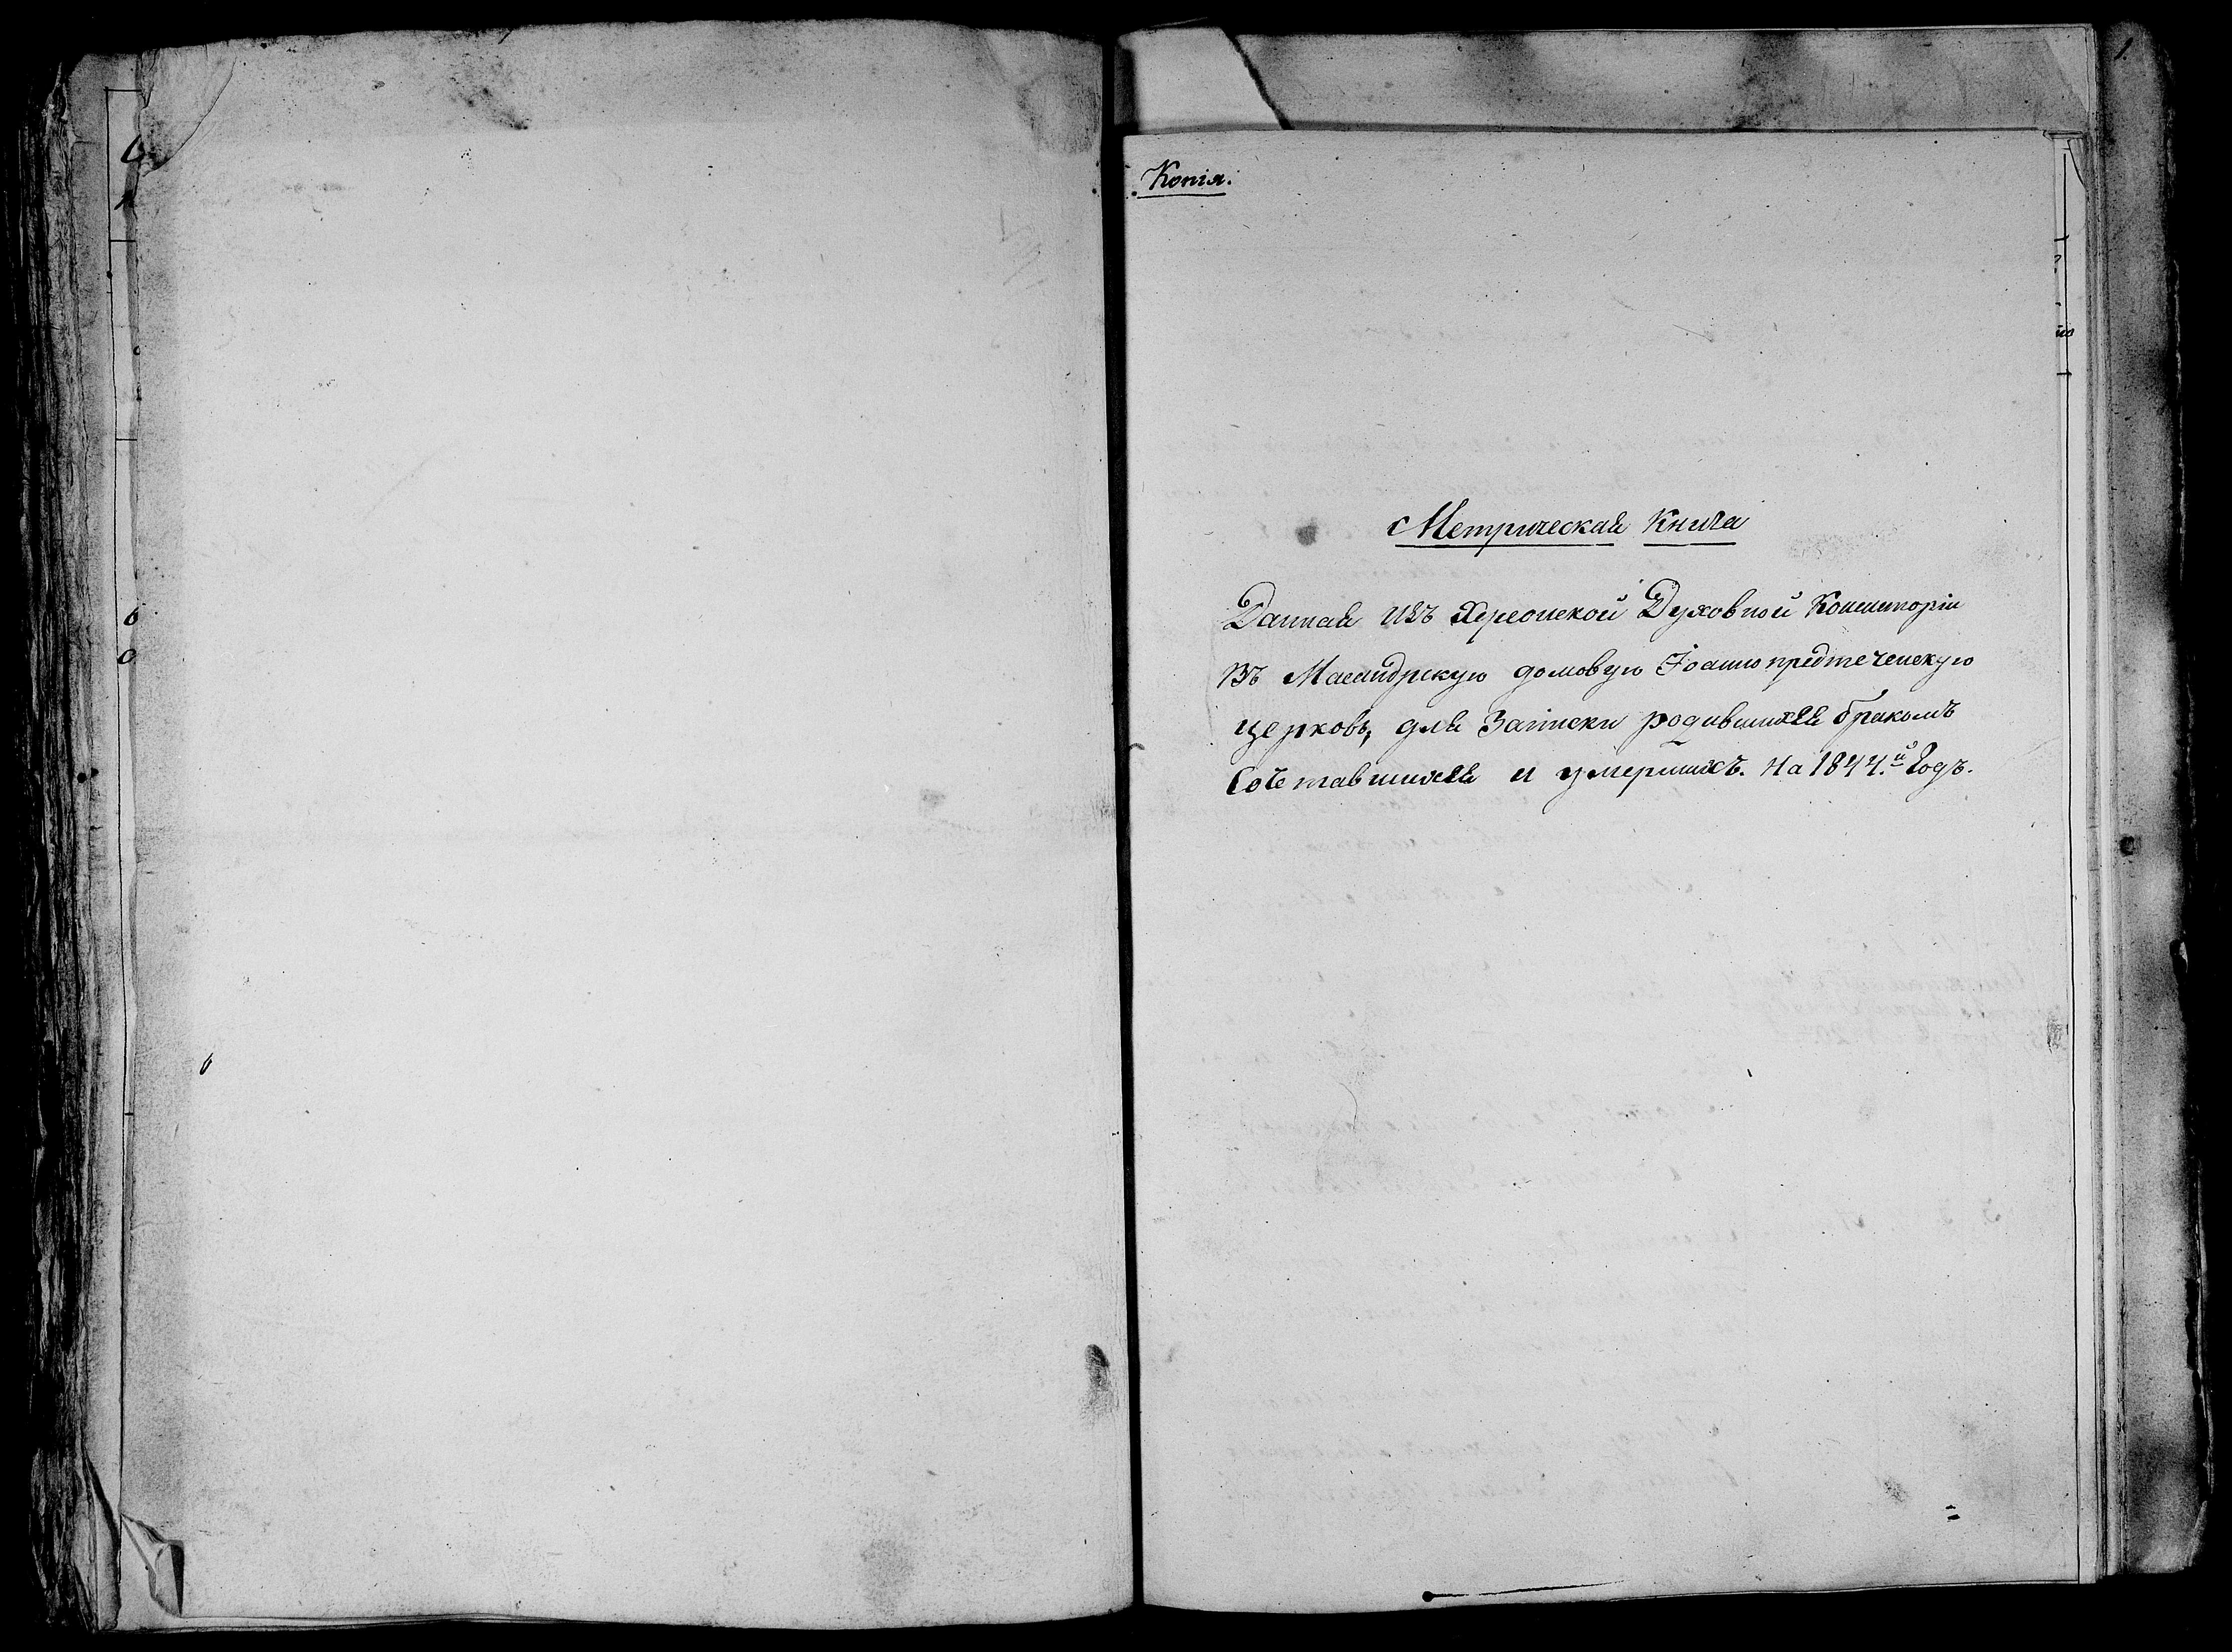 Копія.
Метрическая Книга
Данная изъ Херсонской Духовной Консисторіи
въ Масандрскую домовую Іоаннопредтеченскую
церковь, для Записки родившихся бракомъ
Сочетавшихся и умершихъ. На 1844.й Годъ.